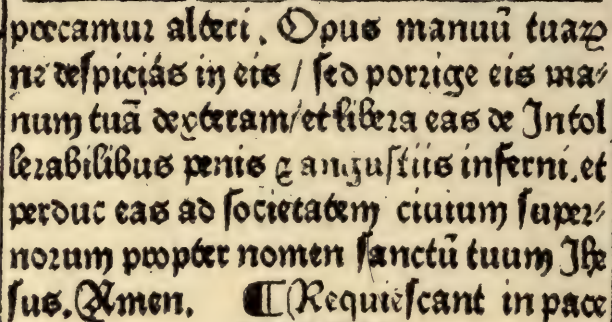 precamur alteri. Opus manuū tuaꝝ
ne despiciás in eis / sed porrige eis ma⸗
num tuā dexteram/et libera eas de Intol
lerabilibus penis ⁊ angustiis inferni.et
perduc eas ad societatem ciuium super⸗
norum propter nomen sanctū tuum Ihe
sus. Amen. ¶ Requiescant in pace